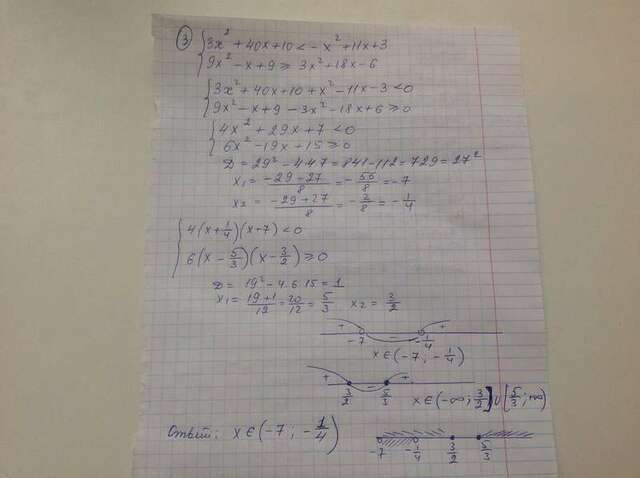 ③ { 3x² + 40x + 10 < -x² + 11x + 3
9x² - x + 9 ≥ 3x² + 18x - 6
{ 3x² + 40x + 10 + x² - 11x - 3 < 0
9x² - x + 9 - 3x² - 18x + 6 ≥ 0
{ 4x² + 29x + 7 < 0
6x² - 19x + 15 ≥ 0
D = 29² - 4·4·7 = 841 - 112 = 729 = 27²
x₁ = (-29 - 27)/8 = -56/8 = -7
x₂ = (-29 + 27)/8 = -2/8 = -1/4
{ 4(x + 1/4)(x + 7) < 0
6(x - 5/3)(x - 3/2) ≥ 0
D = 19² - 4·6·15 = 1
x₁ = (19 + 1)/12 = 20/12 = 5/3 x₂ = 3/2
+ - +
-7 -1/4
x ∈ (-7; -1/4)
+ - +
3/2 5/3
x ∈ (-∞; 3/2] ∪ [5/3; ∞)
Ответ: x ∈ (-7; -1/4)
-7 -1/4 3/2 5/3